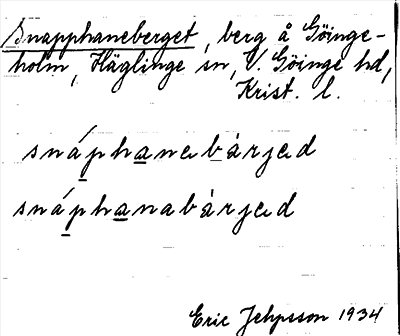 Snapphaneberget, berg å Göinge-
holm, Häglinge sn, V. Göinge hd,
Krist. l.
snáphanebárjed
snáphanabárjed
Eric Jehpsson 1934